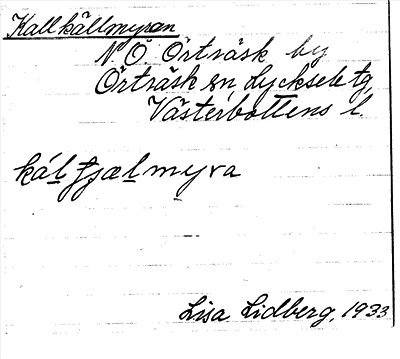 Kallkällmyran
N.Ö. Örträsk by
Örträsk sn, Lycksele tg,
Västerbottens l.
kál̲ fjæl̲myra
Lisa Lidberg, 1933